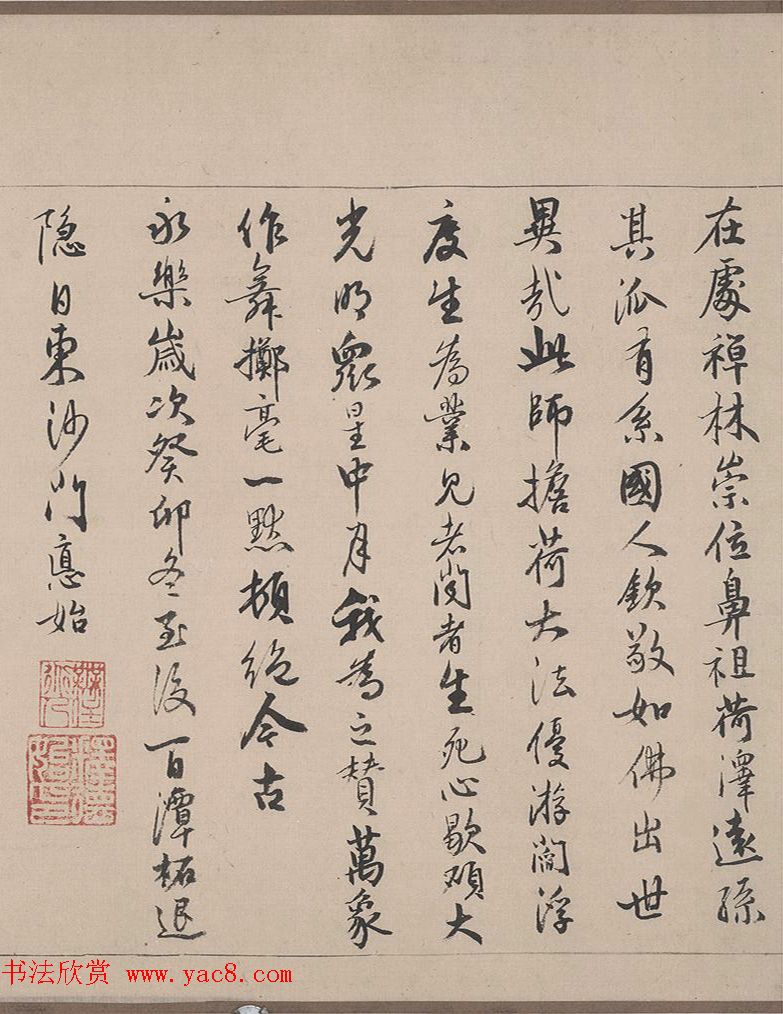 在處禪林崇位鼻祖荷澤遠孫
其派有系國人欽敬如佛出世
異哉此師擔荷大法優游閻浮
度生為業見者聞者生死心歇碩大
光明眾星中月我為之賛萬象
作舞擲毫一點頓絕今古
永樂歲次癸卯冬至後一日潭柘退
隱日東沙門德始
书法欣赏 www.yac8.com